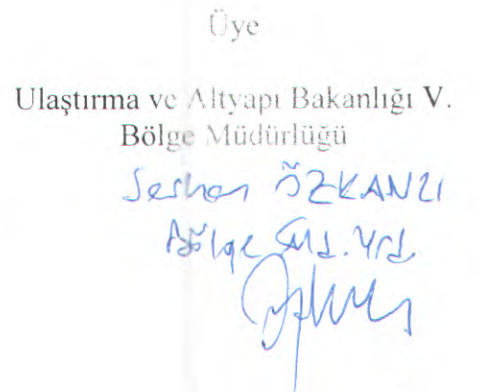 Üye
Ulaştırma ve Altyapı Bakanlığı V.
Bölge Müdürlüğü
Serhan ÖZKANLI
Bölge Md. Yrd.